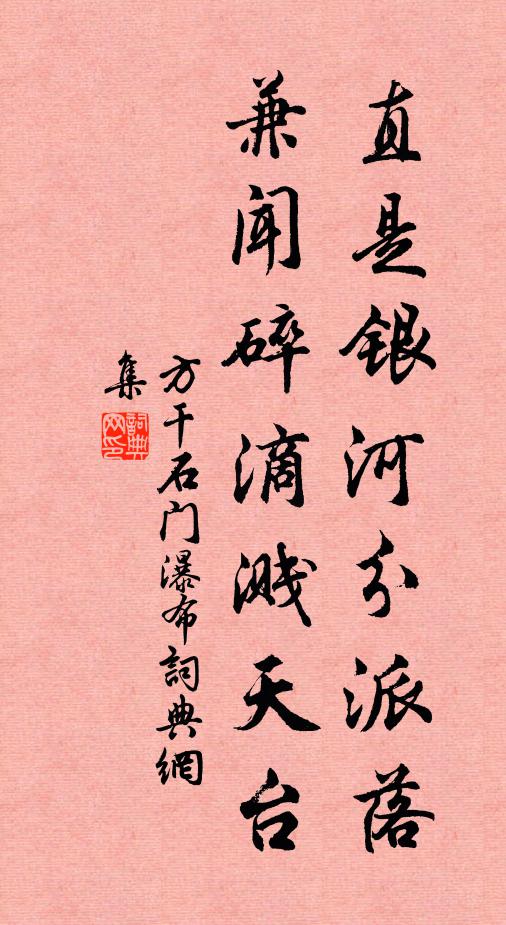 直是银河分派落
兼闻碎滴溅天台
方干石门瀑布词典網
集
詞典
网印